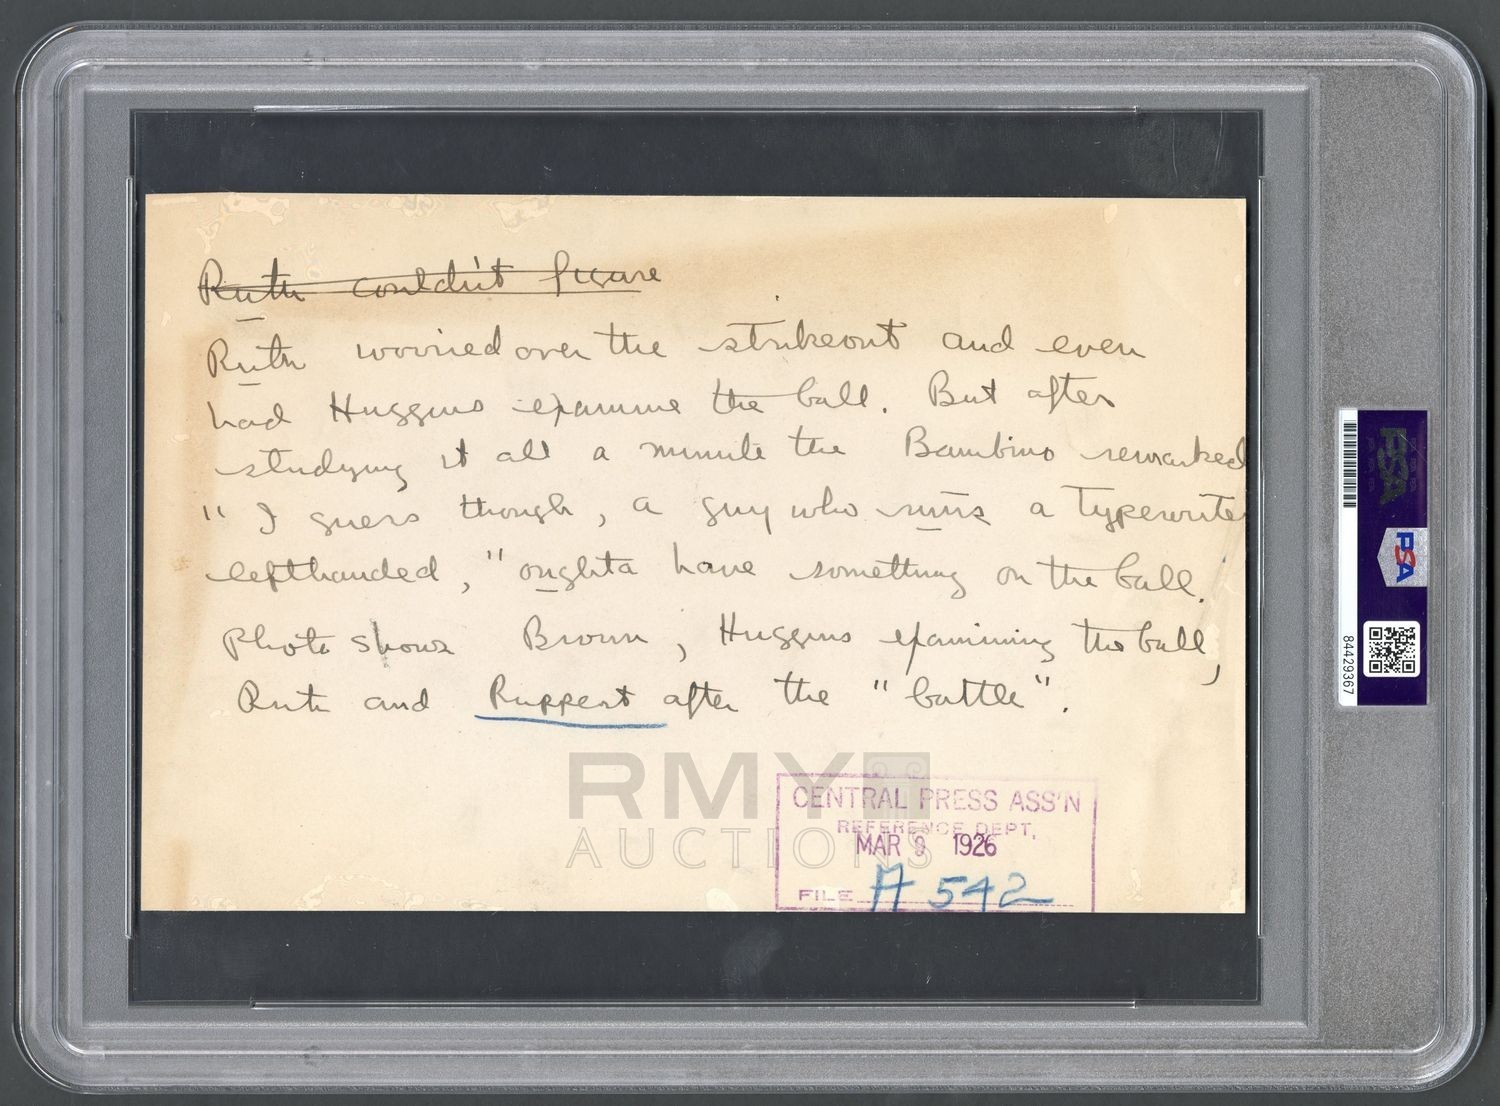 Ruth couldn't figure
Ruth worried over the strikeout and even
had Huggins examine the ball. But after
studying it all a minute the Bambino remarked
" I guess though, a guy who runs a typewriter
lefthanded, " oughta have something on the ball.
Photo shows Brown, Huggins examining the ball,
Ruth and Ruppert after the "battle".
RMY
AUCTIONS
CENTRAL PRESS ASS'N
REFERENCE DEPT.
MAR 9 1926
FILE A 542
PSA
PSA
84429367